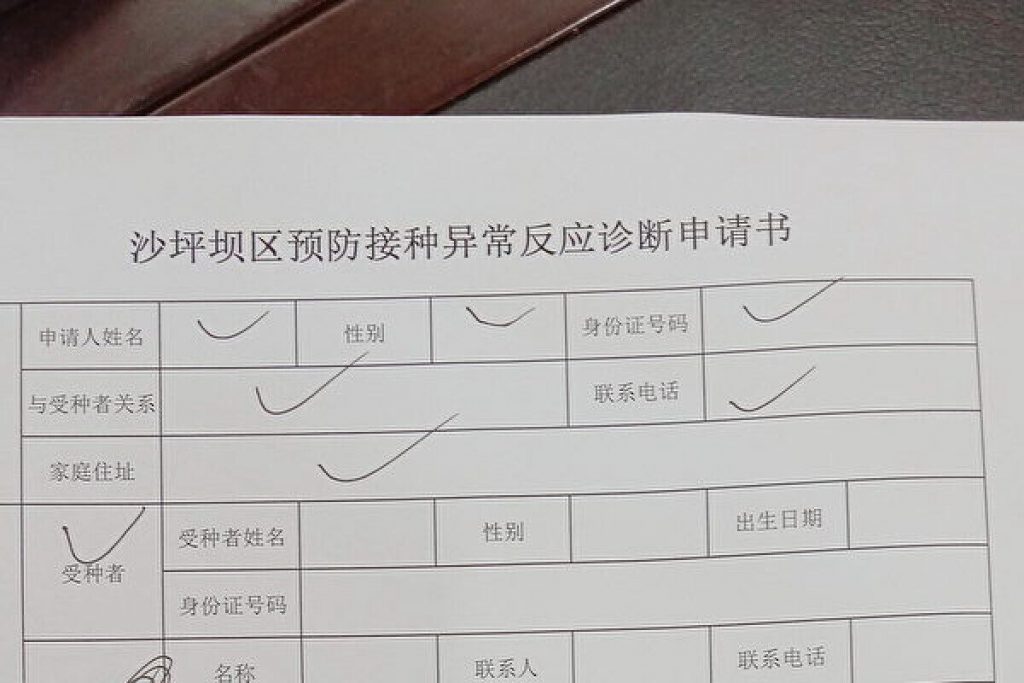 沙坪坝区预防接种异常反应诊断申请书
申请人姓名 性别 身份证号码
与受种者关系 联系电话
家庭住址
受种者 受种者姓名 性别 出生日期
身份证号码
名称 联系人 联系电话